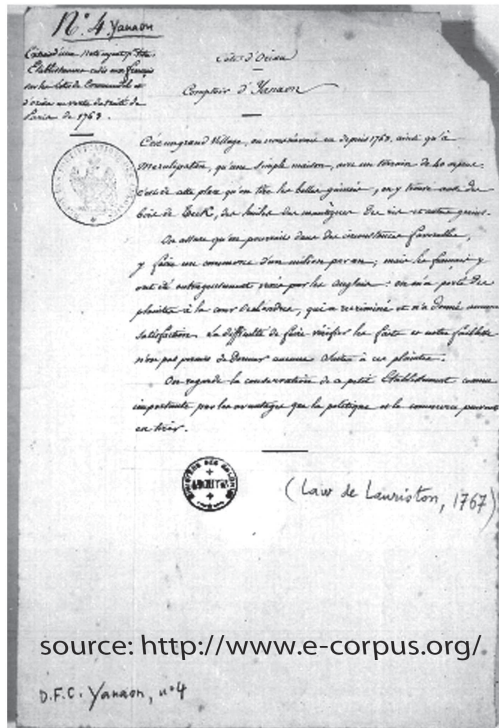 N.° 4 Yanaon
Extrait d'une Note
Établissements cédés aux français
sur les côtes de Coromandel et
d'orixa en vertu du traité de
Paris de 1763.
Côte d'Orixa
Comptoir d'Yanaon
grand Village, ou nous n'avons eu depuis 1763, ainsi qu'à
Mazulipatan, qu'une simple maison, avec un terrain de 40
C'est de cette place qu'on tire les belles guinées, on y trouve aussi du
bois de Teck, des huiles du riz et autres grains.
On assure qu'on pourrait dans des circonstances favorables,
y faire un commerce d'un million par an; mais les français y
ont été vexés par les Anglais: on a porté des
plaintes à la cour de Londres, qui a récriminé et n'a donné aucune
satisfaction. La difficulté de faire vérifier les faits et notre faiblesse
n'ont pas permis de donner aucune suite à ces plaintes.
On regarde la conservation de ce petit Établissement comme
importante par les avantages que la politique et le commerce peuvent
en tirer.
(Law de Lauriston, 1767)
source: http://www.e-corpus.org/
D.F.C. Yanaon, n° 4